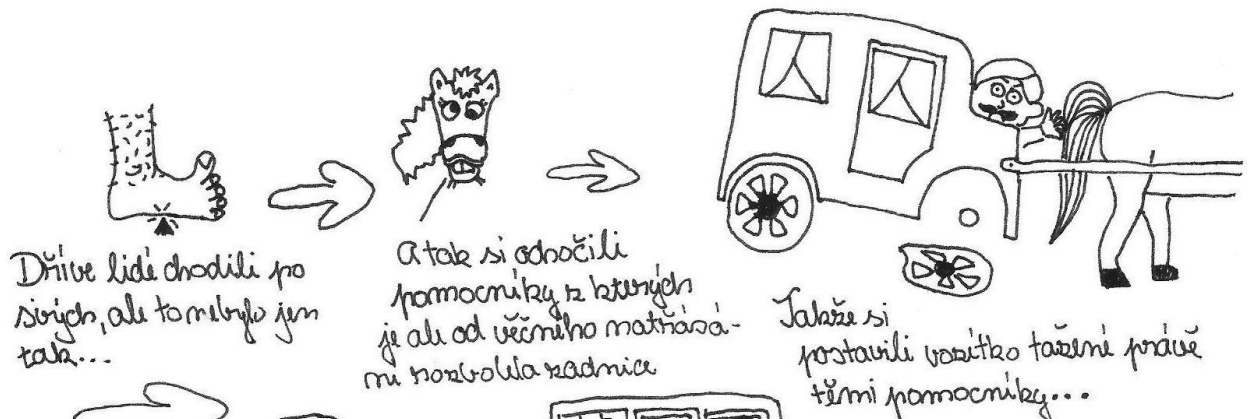 Dříve lidé chodili po
svých, ale to nebylo jen
tak...
A tak si odnočili
pomocníky z kterých
je ale od věčného natřásá-
ní rozbolela zadnice
Takže si
postavili vozítko tažené právě
těmi pomocníky...